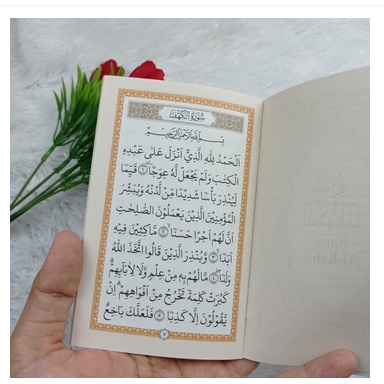 سُوْرَةُ الْكَهْفِ
بِسْمِ اللّٰهِ الرَّحْمٰنِ الرَّحِيْمِ
اَلْحَمْدُ لِلّٰهِ الَّذِيْٓ اَنْزَلَ عَلٰى عَبْدِهِ
الْكِتٰبَ وَلَمْ يَجْعَلْ لَّهٗ عِوَجًا ۜ ١ قَيِّمًا
لِّيُنْذِرَ بَأْسًا شَدِيْدًا مِّنْ لَّدُنْهُ وَيُبَشِّرَ
الْمُؤْمِنِيْنَ الَّذِيْنَ يَعْمَلُوْنَ الصّٰلِحٰتِ
اَنَّ لَهُمْ اَجْرًا حَسَنًا ٢ مَّاكِثِيْنَ فِيْهِ
اَبَدًا ٣ وَّيُنْذِرَ الَّذِيْنَ قَالُوا اتَّخَذَ اللّٰهُ
وَلَدًا ٤ مَا لَهُمْ بِهٖ مِنْ عِلْمٍ وَّلَا لِاٰبَاۤىِٕهِمْ ۗ
كَبُرَتْ كَلِمَةً تَخْرُجُ مِنْ اَفْوَاهِهِمْ ۗ اِنْ
يَّقُوْلُوْنَ اِلَّا كَذِبًا ٥ فَلَعَلَّكَ بَاخِعٌ
٧